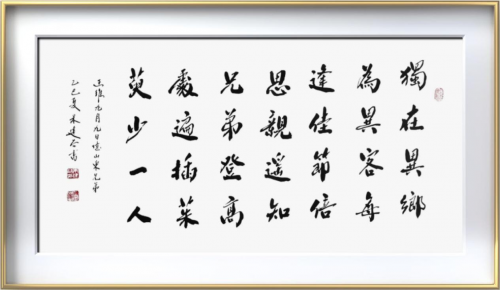 獨在異鄉
為異客每
逢佳節倍
思親遙知
兄弟登高
處遍插茱
萸少一人
王維九月九日憶山東兄弟
乙巳夏書